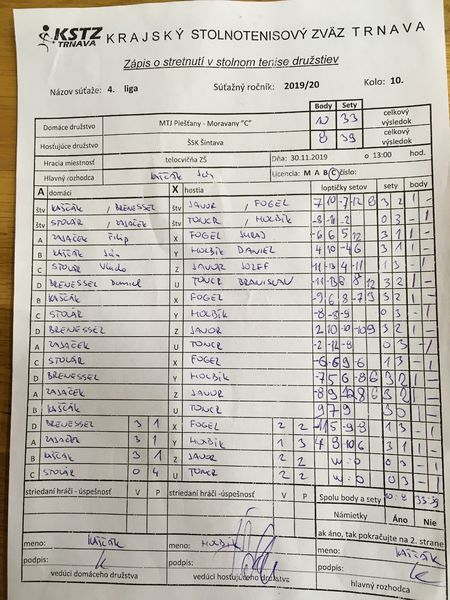 KSTZ TRNAVA KRAJSKÝ STOLNOTENISOVÝ ZVÄZ TRNAVA
Zápis o stretnutí v stolnom tenise družstiev
Názov súťaže: 4. liga Súťažný ročník: 2019/20 Kolo: 10.
Body Sety
Domáce družstvo MTJ Piešťany - Moravany "C" 10 33 celkový výsledok
Hosťujúce družstvo ŠSK Šintava 8 39 celkový výsledok
Hracia miestnosť telocvičňa ZŠ Dňa: 30.11.2019 o 13:00 hod.
Hlavný rozhodca KAŠČÁK Ján Licencia: M A B C číslo:
A domáci X hostia loptičky setov sety body
štv KAŠČÁK, BRENESSEL štv JAVOR, FOGEL 7 10 -7 -12 8 3 2 1 -
štv STOLÁR, ZAJAČEK štv TONCR, HOLBÍK -8 -11 -2 0 3 - 1
A ZAJAČEK Filip X FOGEL JURAJ -6 6 5 12 3 1 1 -
B KAŠČÁK Ján Y HOLBÍK DANIEL 4 10 -4 6 3 1 1 -
C STOLÁR Vlado Z JAVOR JOZEF -11 -13 4 -11 1 3 - 1
D BRENESSEL U TONCR BRANISLAV 3 2 1 -
B KAŠČÁK X FOGEL -9 6 8 -7 9 3 2 1 -
C STOLÁR Y HOLBÍK -8 -8 -9 0 3 - 1
D BRENESSEL Z JAVOR 3 2 1 -
A ZAJAČEK U TONCR -2 -12 -8 0 3 - 1
C STOLÁR X FOGEL -6 -6 9 -6 1 3 - 1
D BRENESSEL Y HOLBÍK -7 5 6 -8 6 3 2 1 -
A ZAJAČEK Z JAVOR 3 2 1 -
B KAŠČÁK U TONCR 9 7 9 3 0 1 -
D BRENESSEL 3 1 X FOGEL 2 2 1 3 - 1
A ZAJAČEK 3 1 Y HOLBÍK 1 3 3 1 1 -
B KAŠČÁK 3 1 Z JAVOR 2 2 w:o 0 3 - 1
C STOLÁR 0 4 U TONCR 2 2 w:o 0 3 - 1
striedaní hráči - úspešnosť V P striedaní hráči -úspešnosť V P Spolu body a sety 10:8 33:39
Námietky Áno Nie
ak áno, tak pokračujte na 2. strane
meno: KAŠČÁK meno: HOLBÍK meno: KAŠČÁK
podpis: podpis: podpis:
vedúci domáceho družstva vedúci hosťujúceho družstva hlavný rozhodca